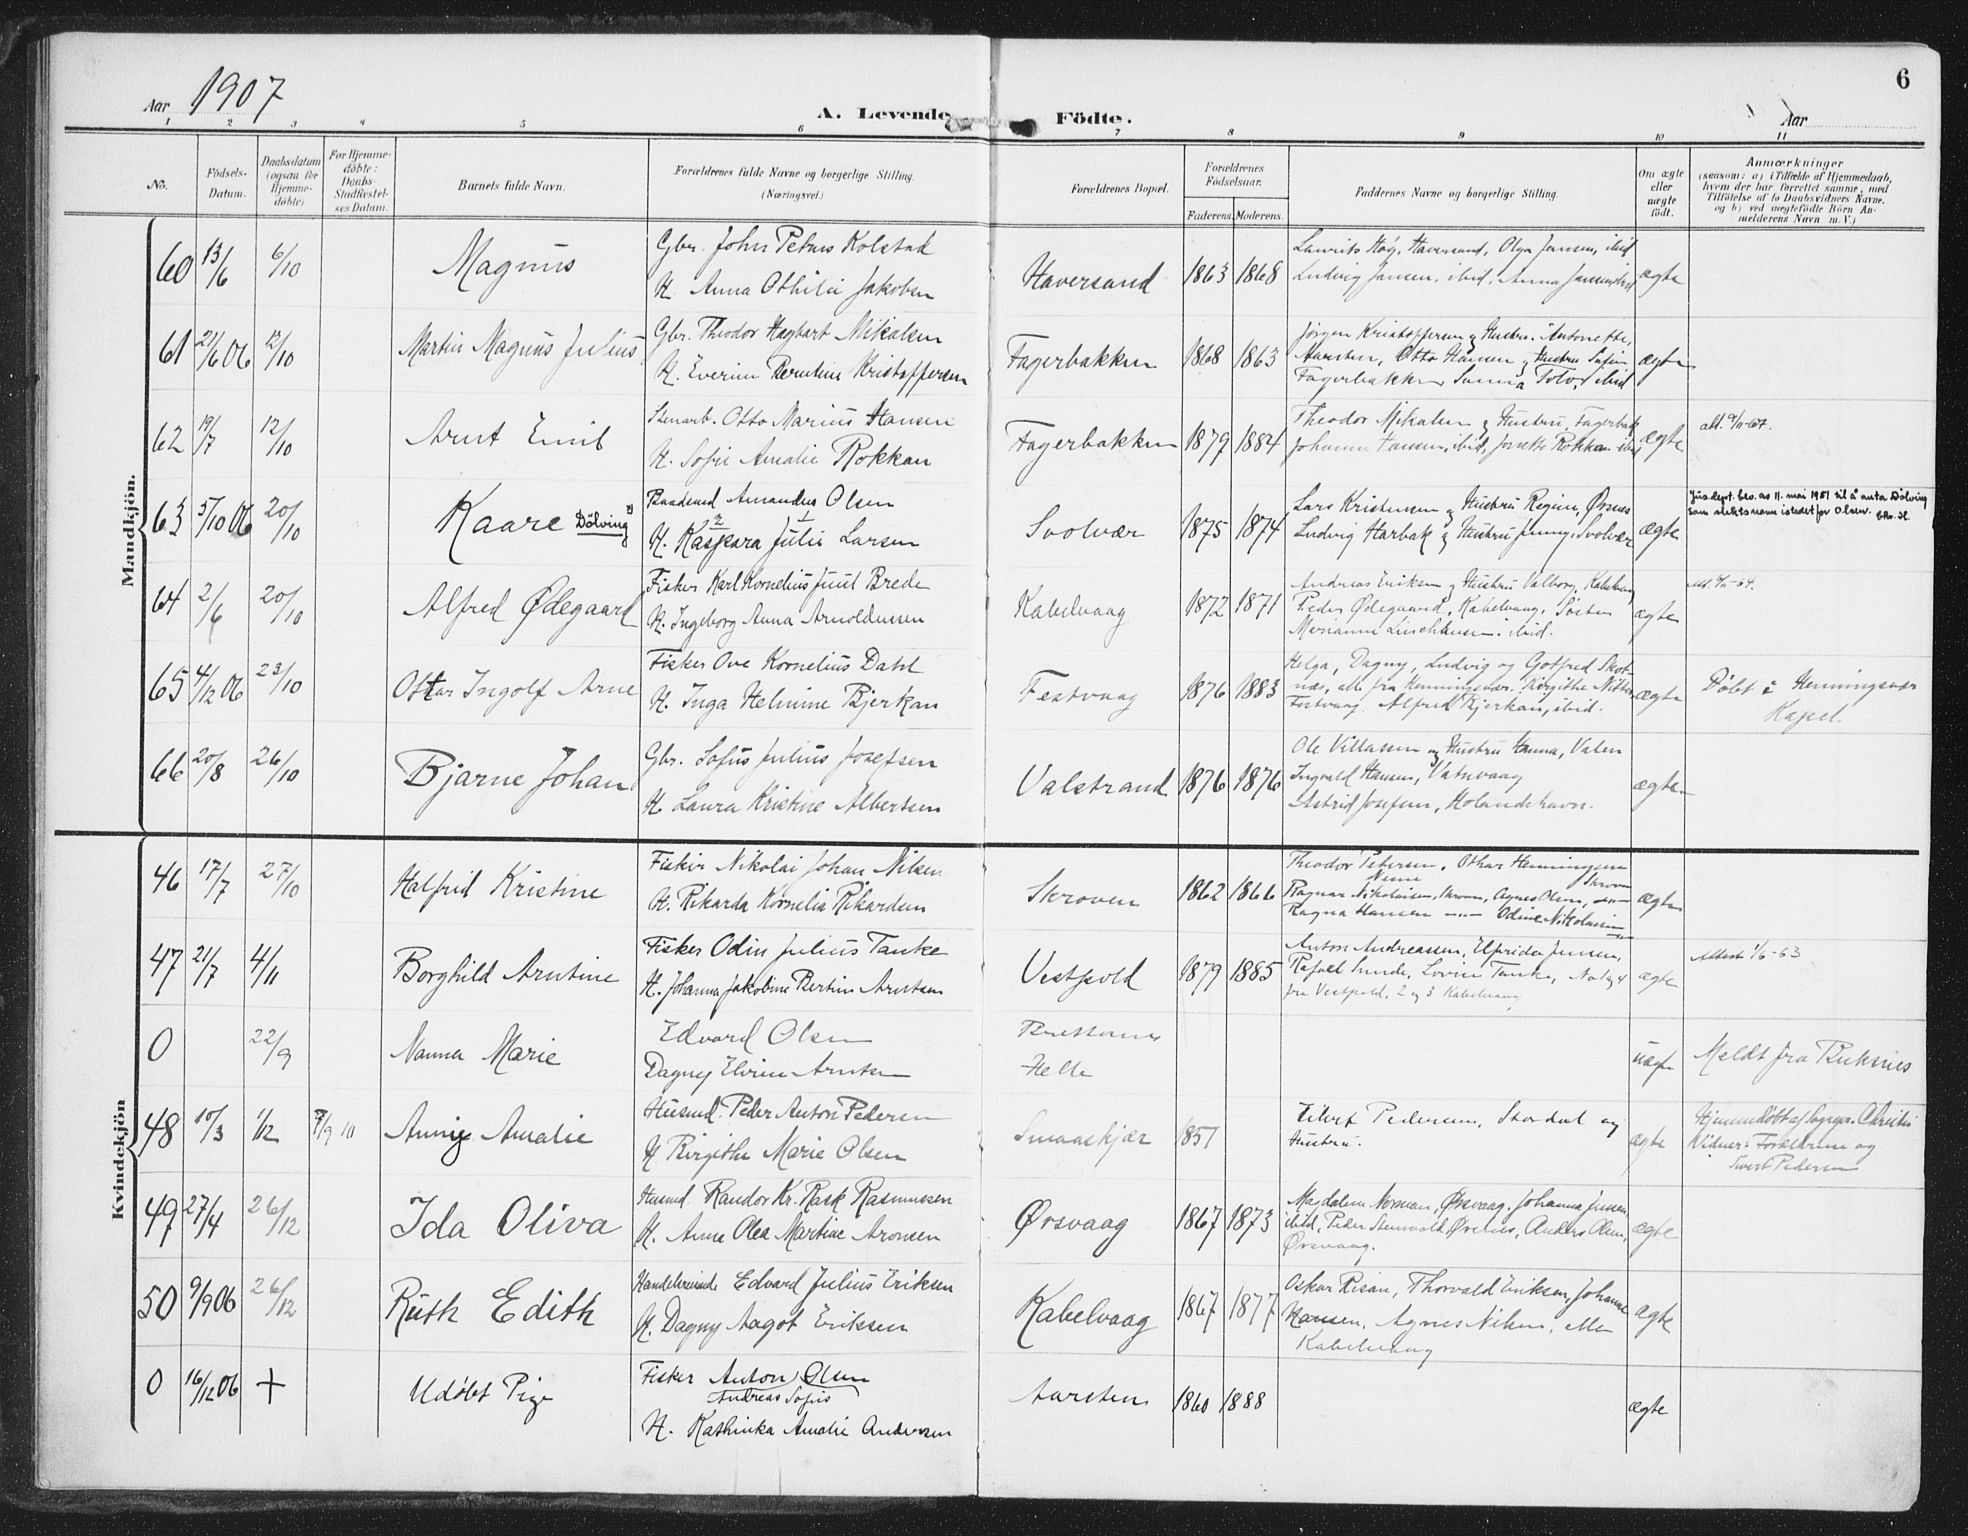 Aar 1907
A. Levende Födte.
6
Aar
1 2 3 4 5 6 7 8 9 10 11
No.
Födsels-Datum.
Daabsdatum (ogsaa for Hjemme-döbte)
For Hjemme-döbte: Daabs-Stadfæstel-ses Datum.
Barnets fulde Navn.
Forældrenes fulde Navne og borgerlige Stilling. (Næringsvei.)
Forældrenes Bopæl.
Forældrenes Födselsaar.
Faderens. Moderens.
Faddernes Navne og borgerlige Stilling.
Om ægte eller uægte födt.
Anmærkninger
(saasom: a) i Tilfælde af Hjemmedaab, hvem der har forrettet samme, med Tilföielse af to Daabsvidners Navne, og b) ved uægtefödte Börn An-melderens Navn m. V.)
Mandkjön.
60 13/6 6/10 Magnus
Gbr. John Petrus Kolstad
H. Anna Othilie Jakobsen
Haversand 1863 1868
Laurits Høg, Haversand, Olga Jansen, ibid
Ludvig Jansen, ibid, Anna Jansen ibid
ægte
61 21/6 06 12/10 Martin Magnus Julius
Gbr. Theodor Hagbart Mikalsen
H. Everine Berntine Kristoffersen
Fagerbakken 1868 1863
Jørgen Kristoffersen og Hustru Antonette,
Aarsten, Otto Hansen og Hustru Sofie
Fagerbakken ibid
ægte
62 19/7 12/10 Arnt Emil
Stenarb. Otto Marius Hansen
H. Sofie Amalie Rokkan
Fagerbakken 1879 1884
Theodor Mikalsen og Hustru, Fagerbak
Johannes Hansen, ibid, Josette Rokkan ibid
ægte
att. 9/11-67.
63 5/10 06 20/10 Kaare Dölving
Baadsmd Amandus Olsen
H. Kaspara Julie Larsen
2 1
Svolvær 1875 1874
Lars Kristensen og Hustru Regine, Ørsnes
Ludvig Harbak og Hustru Jenny, Svolvær
ægte
Jus.dept. bev. av 11. mai 1951 til å anta Dölving
som slektsnavn istedet for Olsen.
64 2/6 20/10 Alfred Ødegaard
Fisker Karl Kornelius Juul Brede
H. Ingeborg Anna Arnoldussen
Kabelvaag 1872 1871
Andreas Eriksen og Hustru Valborg, Kabelvaag
Peder Ødegaard, Kabelvaag,
ibid.
ægte
65 4/12 06 23/10 Ottar Ingolf Arne
Fisker Ove Kornelius Dahl
H. Inga Helmine Bjerkan
Festvaag 1876 1883
Helga, Dagny, Ludvig og Gotfred Skot-
næs, alle fra Henningsvær. Birgithe
Festvaag, Alfred Bjerkan, ibid.
ægte
Döbt i Henningsvær
Kapel.
66 20/8 26/10 Bjarne Johan
Gbr. Sofus Julius Josefsen
H. Laura Kristine Albertsen
Valstrand 1876 1876
Ole Villassen og Hustru Hanna, Valen
Ingvald Hansen, Vatnvaag
Astrid Josefsen, Holandshavn.
ægte
Kvindekjön
46 17/7 27/10 Halfrid Kristine
Fisker Nikolai Johan Nilsen
H. Rikarda Kornelia Rikardsen
Skroven 1862 1866
Theodor Petersen, Othar Henningsen
Skroven
Ragnar Nikolaisen, Skroven, Agnes Olsen,
Ragna Hansen Odine Nikolaisen
ægte
47 21/7 4/11 Borghild Arntine
Fisker Odin Julius Tanke
H. Johanna Jakobine Bertine Arntsen
Vestpold 1879 1885
Anton Andreassen, Elfrida Jensen,
Rafael Lunde, Lovise Tanke, No 1 og 4
fra Vestpold, 2 og 3 Kabelvaag
ægte
Attest 1/6-63
0 22/9 Nanna Marie
Edvard Olsen
Dagny Elvine Arntsen
Helle
uægte
Meldt fra Buksnes
48 10/3 1/12 8/9 10 Annie Amalie
Husmd. Peder Anton Pedersen
H. Birgithe Marie Olsen
Smaaskjær 1851
Eilert Pedersen, Stordal og
Hustru.
ægte
Hjemmedöbt af
Vidner: Forældrene og
Sivert Pedersen
49 27/4 26/12 Ida Oliva
Husmd Randor Kr. Rask Rasmussen
H. Anne Olea Martine Aronsen
Ørsvaag 1867 1873
Magdalene Norman, Ørsvaag, Johanna Jensen,
ibid, Peder Steinvold, Ørsnes, Anders Olsen,
Ørsvaag.
ægte
50 9/9 06 26/12 Ruth Edith
Handelsreisende Edvard Julius Eriksen
H. Dagny Aagot Eriksen
Kabelvaag 1867 1877
Oskar Risan, Thorvald Eriksen, Johanne
Hansen, Agnes Nilsen, alle
Kabelvaag
ægte
0 16/12 06 + Udöbt Pige
Fisker Anton Olsen
Andreas Sofus
H. Kathinka Amalie Andersen
Aarsten 1860 1888
ægte